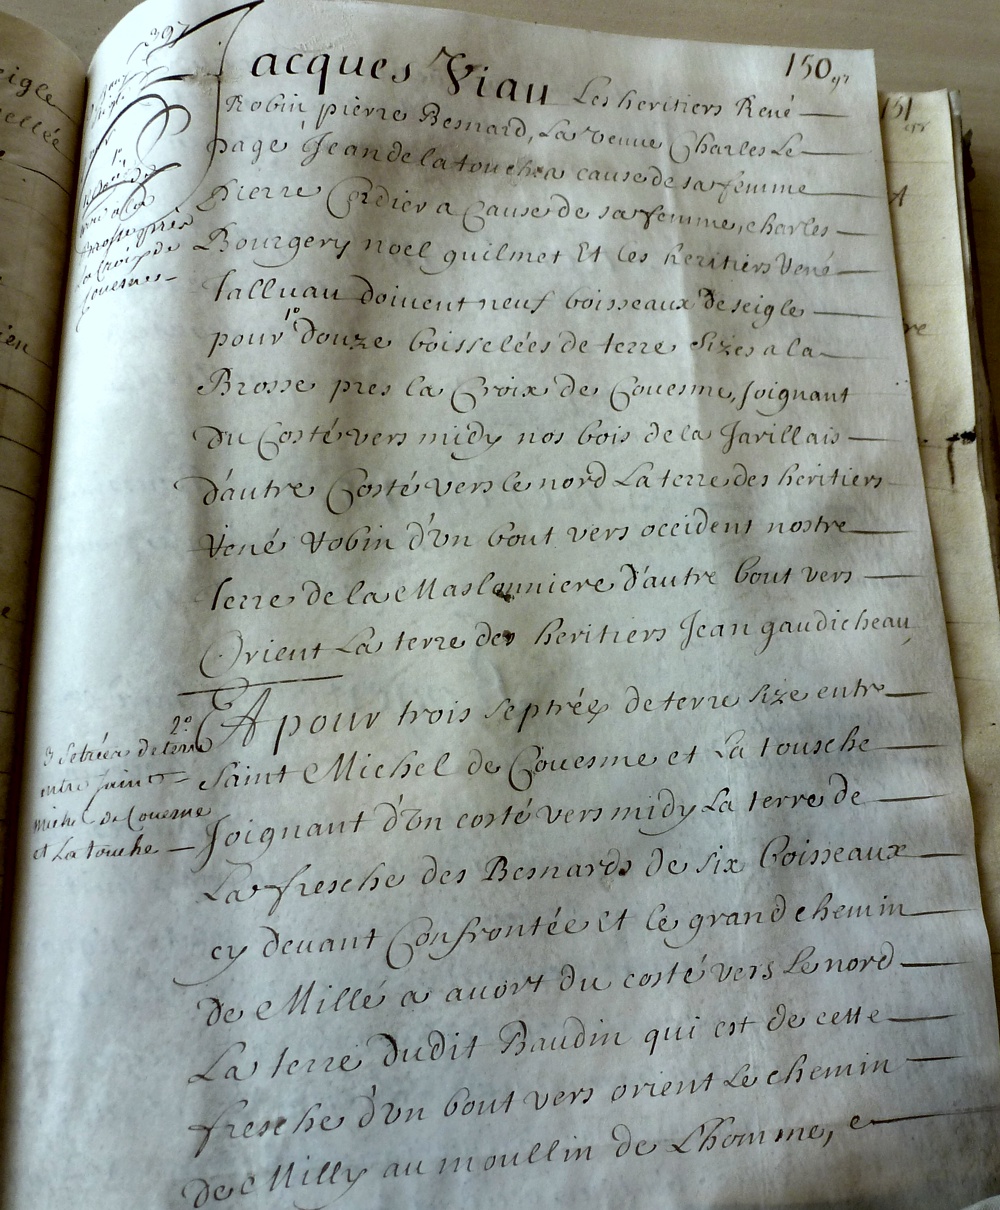 150
Jacques Viau Les heritiers René
Robin pierre Besnard, La veuue Charles Le
page Jean de la touche a cause de sa femme
Pierre Cordier a Cause de sa femme, charles
Bourgery noel guilmet Et les heritiers René
Talluau doiuent neuf boisseaux de seigle
pour 1º douze boisselées de terre sizes a la
Brosse pres la Croix de Couesme, Joignant
du Costé vers midy nos bois de la Jarillais
d'autre Costé vers le nord La terre des heritiers
René Robin d'vn bout vers occident nostre
terre de la Maslonniere d'autre bout vers
Orient La terre des heritiers Jean gaudicheau
2º Et pour trois septrées de terre size entre
Saint Michel de Couesme et La tousche
Joignant d'vn costé vers midy La terre de
La fresche des Besnards de six boisseaux
cy deuant Confrontée et le grand chemin
de Millé a auort du costé vers Le nord
La terre dudit Baudin qui est de cette
fresche d'vn bout vers orient Le chemin
de Milly au moullin de L'homme, e
la Croix de
Couesmes
3 Setrées de terre
entre saint
michel de Couesme
et La touche